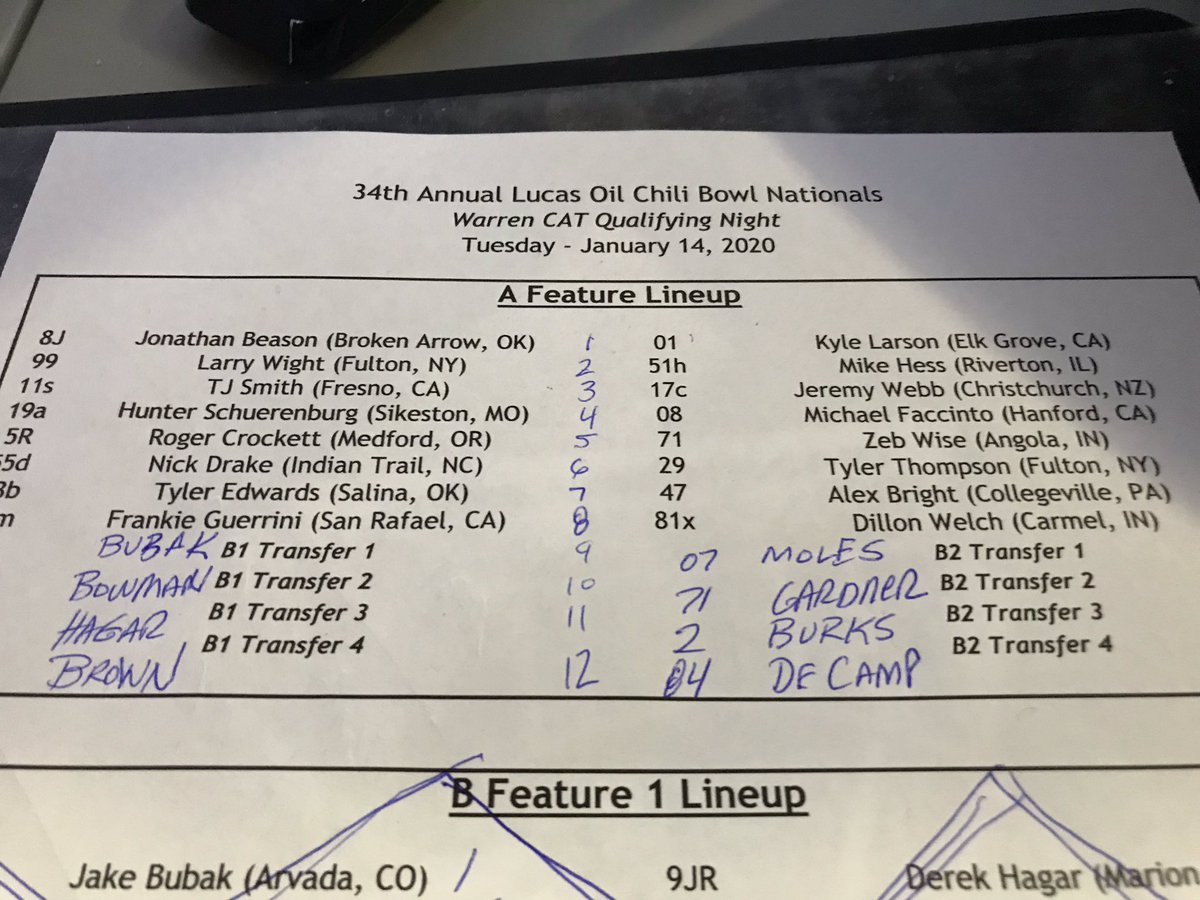 34th Annual Lucas Oil Chili Bowl Nationals
Warren CAT Qualifying Night
Tuesday - January 14, 2020
A Feature Lineup
8J Jonathan Beason (Broken Arrow, OK) 1 01 Kyle Larson (Elk Grove, CA)
99 Larry Wight (Fulton, NY) 2 51h Mike Hess (Riverton, IL)
11s TJ Smith (Fresno, CA) 3 17c Jeremy Webb (Christchurch, NZ)
19a Hunter Schuerenburg (Sikeston, MO) 4 08 Michael Faccinto (Hanford, CA)
5R Roger Crockett (Medford, OR) 5 71 Zeb Wise (Angola, IN)
5d Nick Drake (Indian Trail, NC) 6 29 Tyler Thompson (Fulton, NY)
b Tyler Edwards (Salina, OK) 7 47 Alex Bright (Collegeville, PA)
m Frankie Guerrini (San Rafael, CA) 8 81x Dillon Welch (Carmel, IN)
BUBAK B1 Transfer 1 9 07 MOLES B2 Transfer 1
BOWMAN B1 Transfer 2 10 71 GARDNER B2 Transfer 2
HAGAR B1 Transfer 3 11 2 BURKS B2 Transfer 3
BROWN B1 Transfer 4 12 84 DE CAMP B2 Transfer 4
B Feature 1 Lineup
Jake Bubak (Arvada, CO) 1 9JR Derek Hagar (Marion